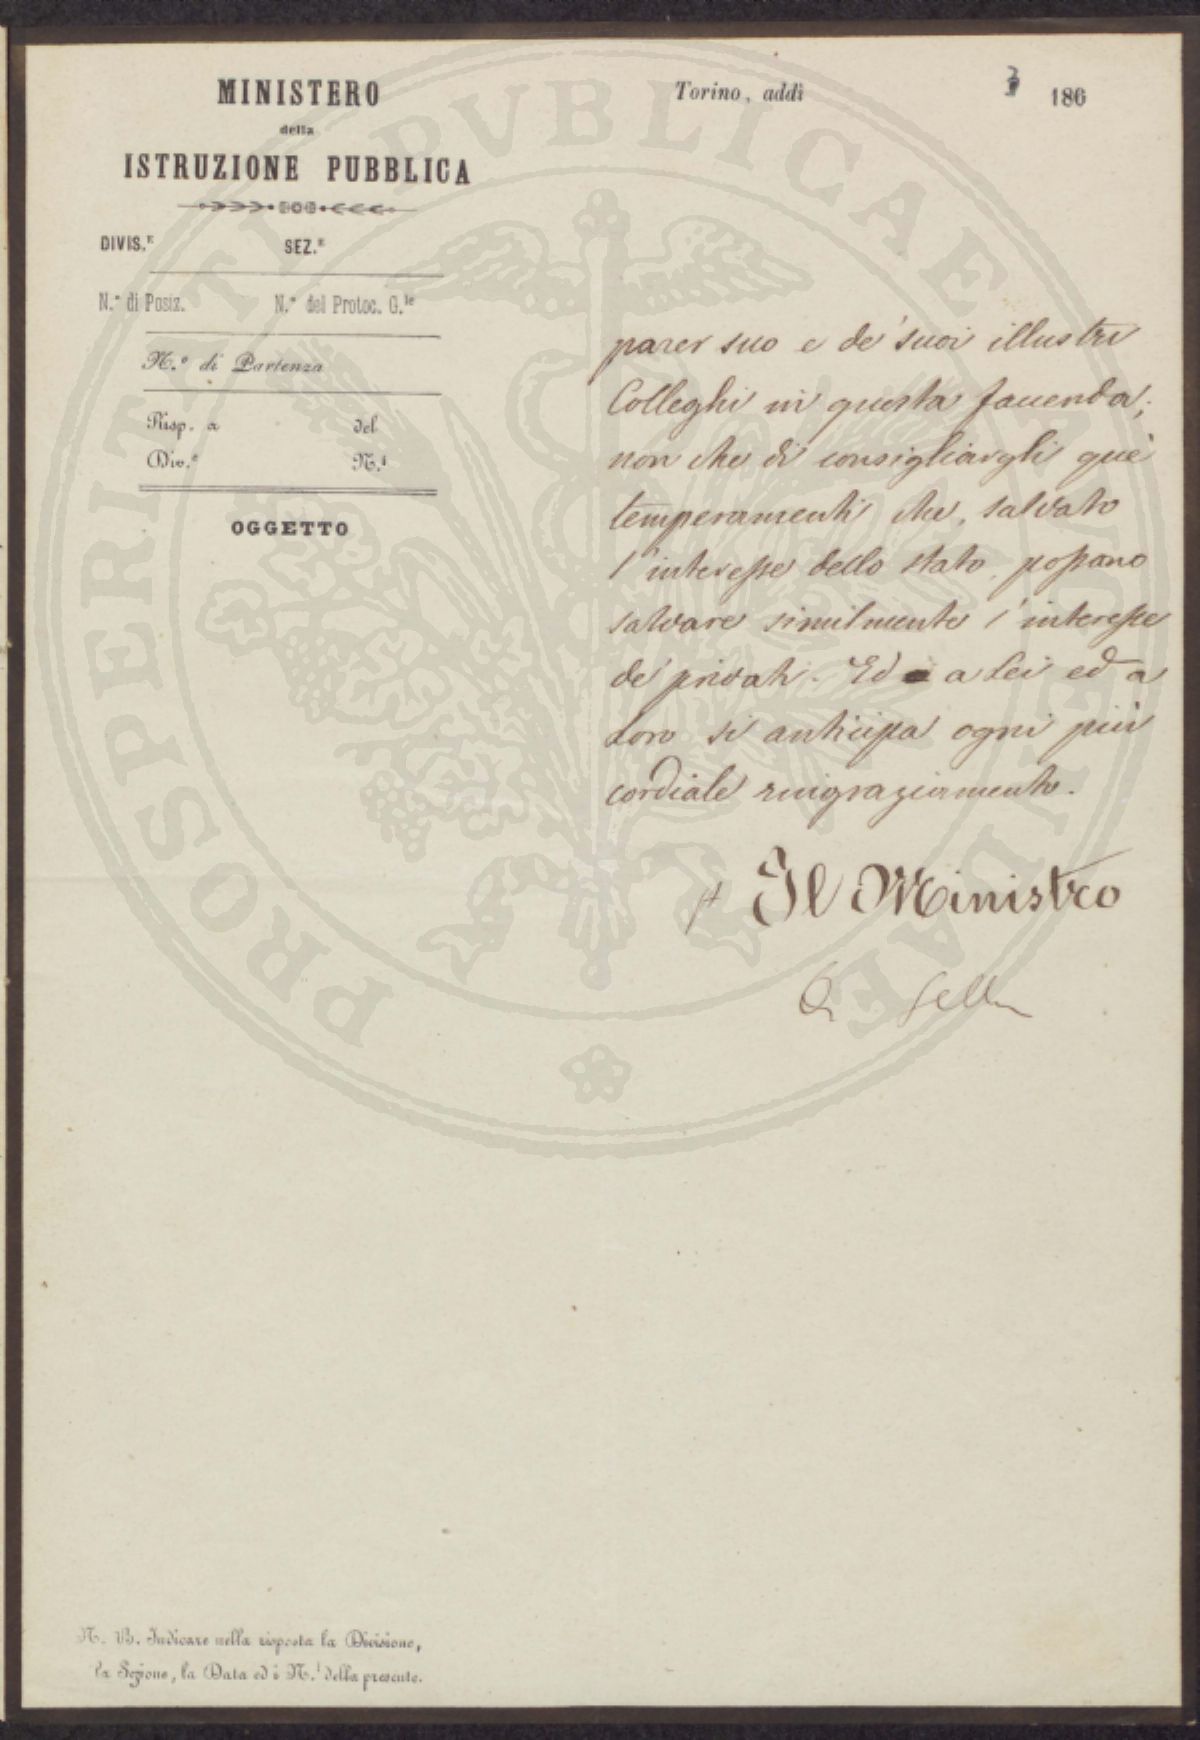 MINISTERO
della
ISTRUZIONE PUBBLICA
DIVIS.E SEZ.E
N.° di Posiz. N.° del Protoc. G.le
N.° di Partenza
Risp. a del
Div.e N.i
OGGETTO
Torino, addì 186
parer suo e de' suoi illustri
Colleghi in questa faccenda;
non che di consigliargli que'
temperamenti che, salvato
l'interesse dello stato, possano
salvare similmente l'interesse
de' privati. Ed a Lei ed a
Loro si anticipa ogni più
cordiale ringraziamento.
Il Ministro
Q Sella
N. B. Indicare nella risposta la Divisione,
la Sezione, la Data ed i N.i della presente.
PROSPERITATI PVBLICAE